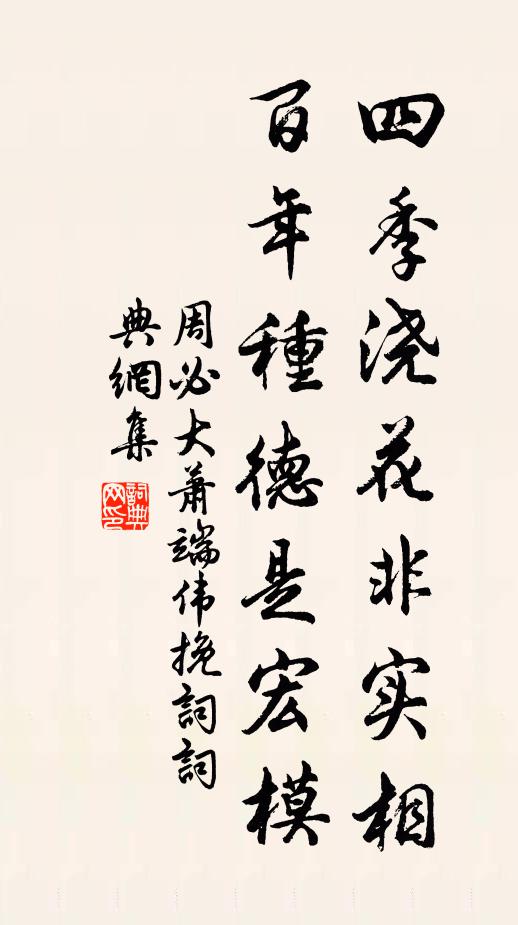 四季浇花非实相
百年種德是宏模
周必大萧端伟挽詞詞
典網集
詞典
网印